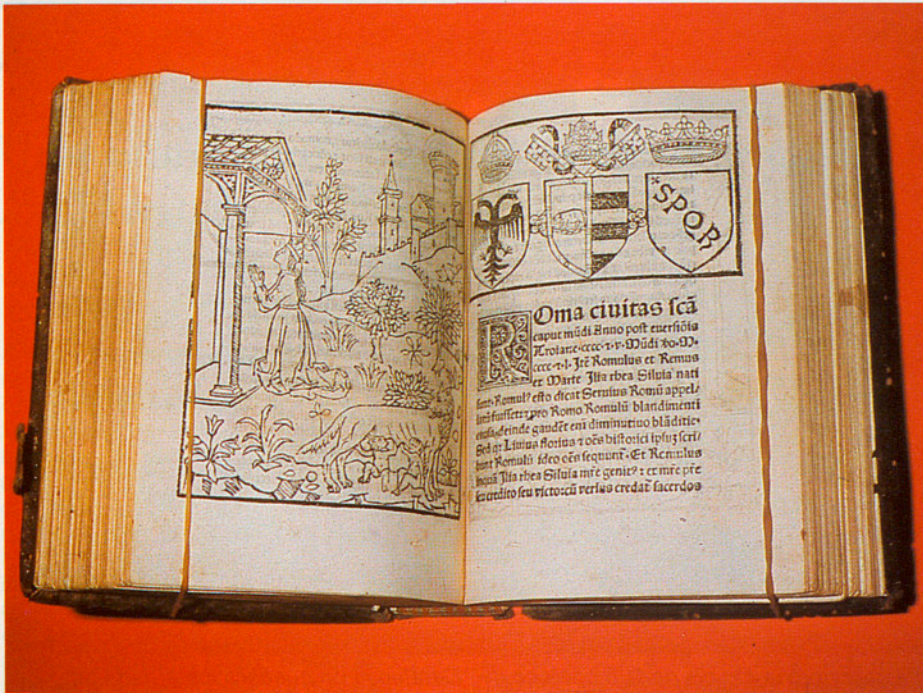 SPQR
Roma ciuitas scā
caput mūdi Anno post euersiōis
Troiane·cccc·⁊·v·Mūdi ṽo·M·
cccc·⁊·l· Romulus et Remus
et Marte Ilia rhea Siluia nati
Romulꝰ esto dicat Seruius Romū appel/
pro Romo Romulū blandimenti
deinde gaudēt eni diminutiuo blāditie·
Sed qꝛ Liuius florius ⁊ oēs historici ipsuꝫ scri/
bunt Romulū ideo oēs sequunt̄· Et Remulus
Ilia rhea Siluia mr̄e genitꝰ: et mr̄e pr̄e
seu credito seu victor cū verius credat̄ sacerdos